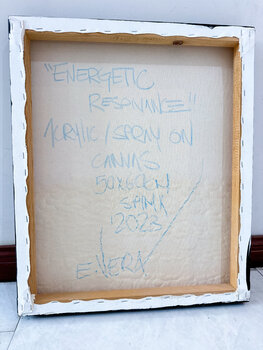 "ENERGETIC
RESONANCE"
ACRYLIC/SPRAY ON
CANVAS
50X60CM
SPAIN
2023
E.VERA